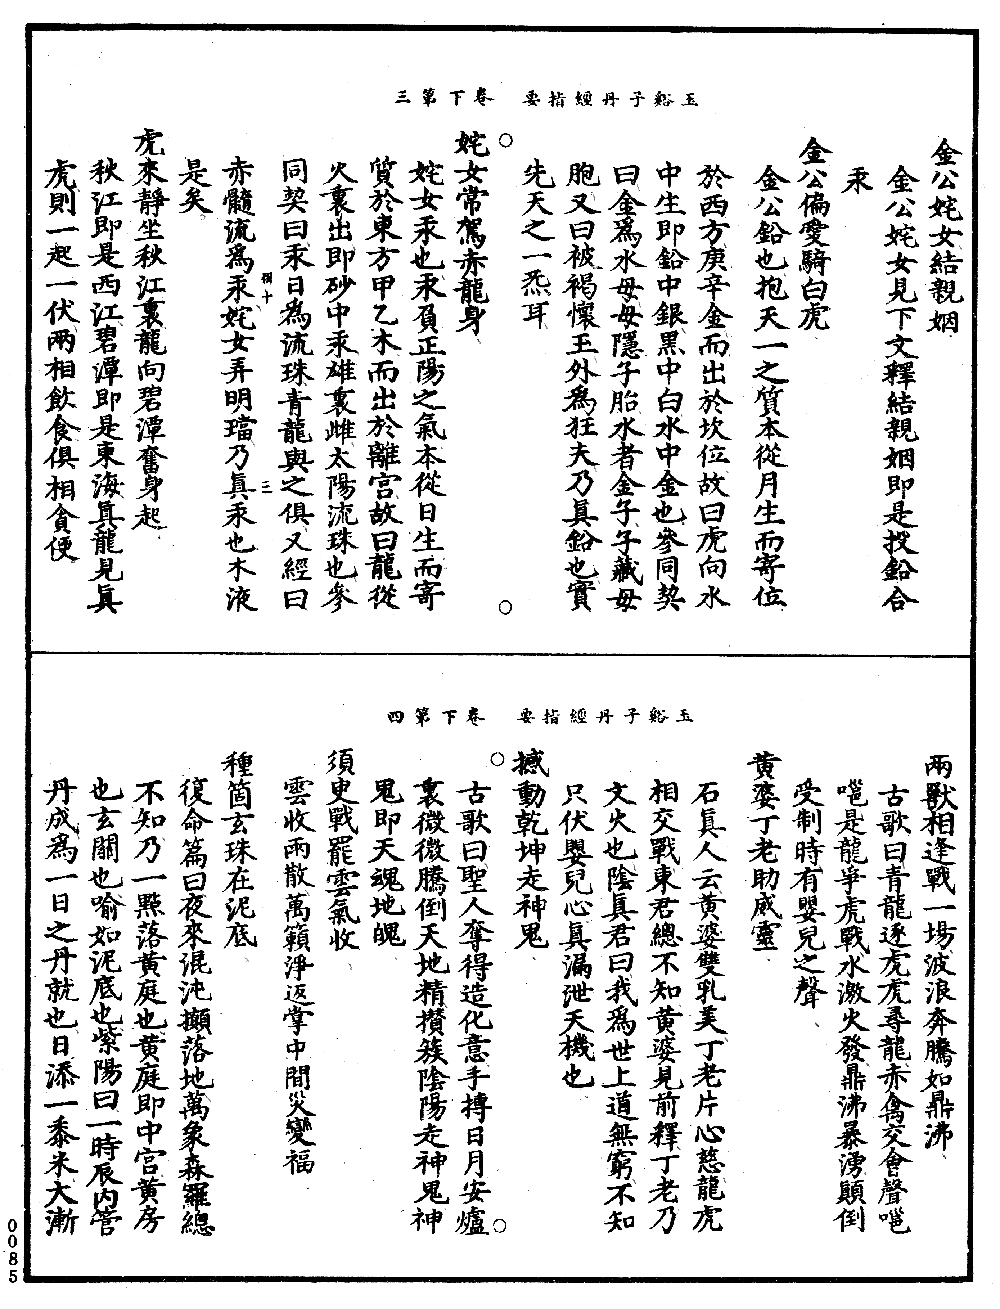 玉谿子丹經指要　卷下第三
金公姹女結親姻
金公姹女見下文釋結親姻即是投鉛合
汞
金公偏愛騎白虎
金公鉛也抱天一之質本從月生而寄位
於西方庚辛金而出於坎位故曰虎向水
中生即鉛中銀黑中白水中金也參同契
曰金為水母母隱子胎水者金子子藏母
胞又曰被褐懷玉外為狂夫乃真鉛也實
先天之一炁耳
姹女常駕赤龍身
姹女汞也汞負正陽之氣本從日生而寄
質於東方甲乙木而出於離宮故曰龍從
火裏出即砂中汞雄裏雌太陽流珠也參
同契曰汞日為流珠青龍與之俱又經曰
赤髓流為汞姹女弄明璫乃真汞也木液
是矣
虎來靜坐秋江裏龍向碧潭奮身起
秋江即是西江碧潭即是東海真龍見真
虎則一起一伏兩相飲食俱相貪便
玉谿子丹經指要　卷下第四
兩獸相逢戰一場波浪奔騰如鼎沸
古歌曰青龍逐虎虎尋龍赤禽交會聲嗈
嗈是龍爭虎戰水激火發鼎沸暴湧顛倒
受制時有嬰兒之聲
黃婆丁老助威靈
石真人云黃婆雙乳美丁老片心慈龍虎
相交戰東君總不知黃婆見前釋丁老乃
文火也陰真君曰我為世上道無窮不知
只伏嬰兒心真漏泄天機也
撼動乾坤走神鬼
古歌曰聖人奪得造化意手搏日月安爐
裏微微騰倒天地精攢簇陰陽走神鬼神
鬼即天魂地魄
須臾戰罷雲氣收
雲收雨散萬籟淨返掌中間災變福
種箇玄珠在泥底
復命篇曰夜來混沌攧落地萬象森羅總
不知乃一點落黃庭也黃庭即中宮黃房
也玄關也喻如泥底也紫陽曰一時辰內管
丹成為一日之丹就也日添一黍米大漸
0085